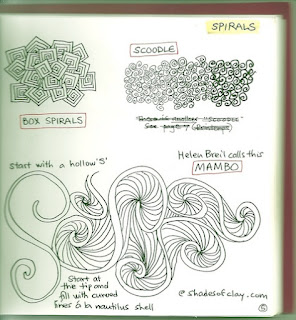 SPIRALS
SCOODLE
BOX SPIRALS
see page
Start with a hollow 'S'
Helen Breil calls this
MAMBO
Start at
the tip and
fill with curved
lines à la nautilus shell
@ shadesofclay.com